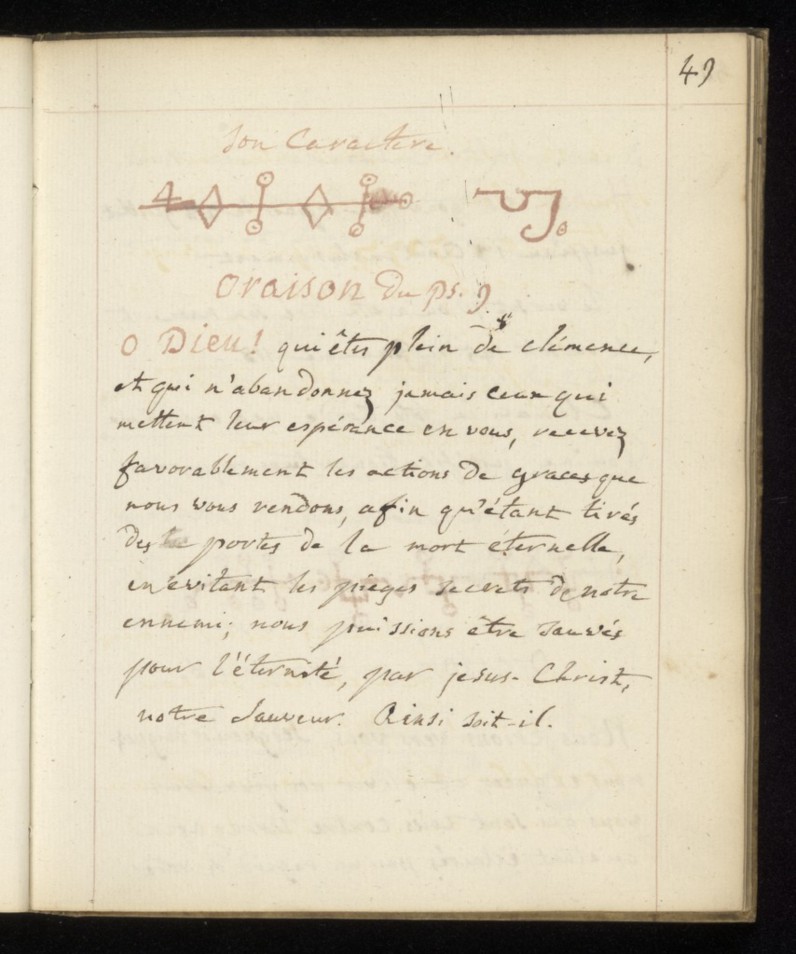 49
Son Caractere.
oraison du ps. 9.
O Dieu! qui êtes plein de clémence,
et qui n'abandonnez jamais ceux qui
mettent leur espérance en vous, recevez
favorablement les actions de graces que
nous vous rendons, afin qu'étant tirés
des portes de la mort éternelle,
en évitant les pieges secrets de notre
ennemi; nous puissions être sauvés
pour l'éternité, par jesus-Christ,
notre Sauveur. Ainsi soit-il.